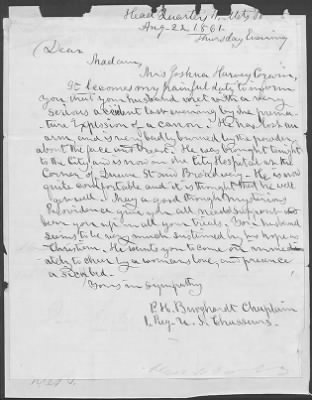 Head Quarters
Aug- 22 1861.
Thursday Evening
Dear
Madam,
Mrs Joshua Harvey
It becomes my painful duty to inform
you that your husband met with a very
serious accident last evening by the prema-
ture Explosion of a canon. He has lost an
arm and is very badly burned by the powder
about the face and breast. He was brought tonight
to the City and is now in the City Hospital on the
Corner of Street and Broadway. He is now
quite comfortable and it is thought that he will
get well. May a good though mysterious
Providence, give you all needed support and
bear you up in all your trials. Your husband
seems to be very much sustained by his hope as
a Christian. He wants you to come on immedi-
ately to cheer by a womans love, and presence
a sick bed.
Yours in sympathy
P. H. Burghardt Chaplain
1. Reg. U. S. Chasseurs.